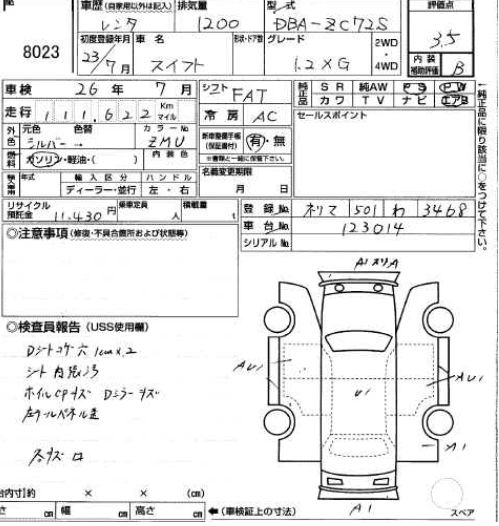 8023
車歴 (自家用以外は記入) レンタ
排気量 1200
型式 DBA-ZC72S
評価点 3.5
初度登録年月 23/7月
車名 スイフト
形状・ドア数
グレード 1.2×G
2WD・4WD
内装補助評価 B
車検 26年 7月
シフト FAT
純正品 SR 純AW PS PW
カワ TV ナビ エアB
走行 111,622 Km マイル
冷房 AC
セールスポイント
外色 元色 シルバー 色替
カラーNo ZMU
内装色
燃料 ガソリン・軽油・( )
新車整備手帳(保証書付) 有・無
※書類と一緒に保管下さい。
名義変更期限 月 日
輸入車 年式 輸入区分 ディーラー・並行 ハンドル 左・右
←純正品に限り該当に○をつけて下さい。
リサイクル預託金 11,430円
乗車定員 人
積載量 t
登録No. 501 わ 3468
車台No. 123014
シリアルNo.
◎注意事項 (修復・不具合箇所および状態等)
◎検査員報告 (USS使用欄)
Dシートコゲ穴1cm×2
A1
AU1
U1
AU1
A1
A1
台内寸 約 × × (cm)
さ cm 幅 cm 高さ cm
←(車検証上の寸法)
スペア